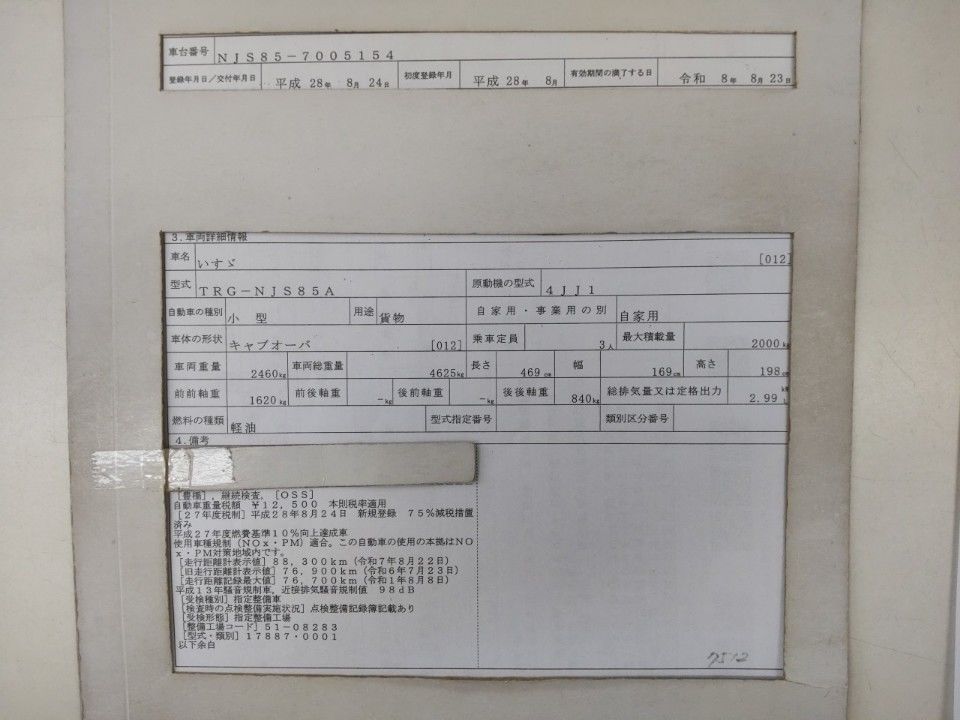 車台番号 NJS85-7005154
登録年月日/交付年月日 平成 28年 8月 24日 初度登録年月 平成 28年 8月 有効期間の満了する日 令和 8年 8月 23日
3.車両詳細情報
車名 いすゞ [012]
型式 TRG-NJS85A 原動機の型式 4JJ1
自動車の種別 小 型 用途 貨物 自家用・事業用の別 自家用
車体の形状 キャブオーバ [012] 乗車定員 3人 最大積載量 2000kg
車両重量 2460kg 車両総重量 4625kg 長さ 469cm 幅 169cm 高さ 198cm
前前軸重 1620kg 前後軸重 -kg 後前軸重 -kg 後後軸重 840kg 総排気量又は定格出力 2.99 kW L
燃料の種類 軽油 型式指定番号 類別区分番号
4.備考
[豊橋],継続検査,[OSS]
自動車重量税額 ¥12,500 本則税率適用
[27年度税制]平成28年8月24日 新規登録 75%減税措置
済み
平成27年度燃費基準10%向上達成車
使用車種規制(NOx・PM)適合。この自動車の使用の本拠はNO
x・PM対策地域内です。
[走行距離計表示値]88,300km(令和7年8月22日)
[旧走行距離計表示値]76,900km(令和6年7月23日)
[走行距離記録最大値]76,700km(令和1年8月8日)
平成13年騒音規制車,近接排気騒音規制値 98dB
[受検種別]指定整備車
[検査時の点検整備実施状況]点検整備記録簿記載あり
[受検形態]指定整備工場
[整備工場コード]51-08283
[型式・類別]17887・0001
以下余白